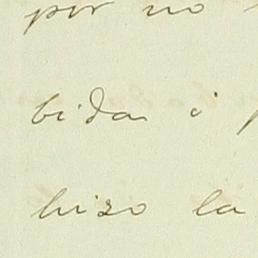 por no
bida i
hizo la